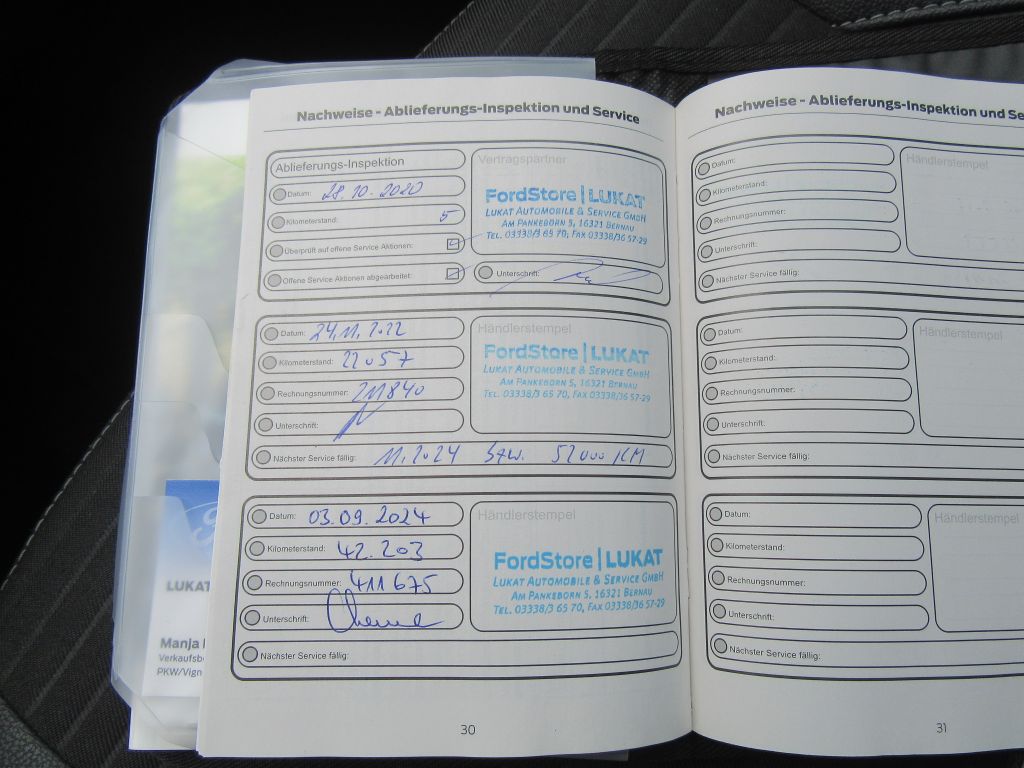 Nachweise - Ablieferungs-Inspektion und Service
Ablieferungs-Inspektion
Datum: 28.10.2020
Kilometerstand: 5
Überprüft auf offene Service Aktionen:
Offene Service Aktionen abgearbeitet:
Vertragspartner
FordStore | LUKAT
LUKAT AUTOMOBILE & SERVICE GMBH
AM PANKEBORN 5, 16321 BERNAU
TEL. 03338/3 65 70, FAX 03338/36 57-29
Unterschrift:
Datum: 24.11.2022
Kilometerstand: 22057
Rechnungsnummer: 211840
Unterschrift:
Händlerstempel
FordStore | LUKAT
LUKAT AUTOMOBILE & SERVICE GMBH
AM PANKEBORN 5, 16321 BERNAU
TEL. 03338/3 65 70, FAX 03338/36 57-29
Nächster Service fällig: 11.2024 bzw. 52000 KM
Datum: 03.09.2024
Kilometerstand: 42.203
Rechnungsnummer: 411675
Unterschrift:
Händlerstempel
FordStore | LUKAT
LUKAT AUTOMOBILE & SERVICE GMBH
AM PANKEBORN 5, 16321 BERNAU
TEL. 03338/3 65 70, FAX 03338/36 57-29
Nächster Service fällig:
30
Nachweise - Ablieferungs-Inspektion und Se
Datum:
Kilometerstand:
Rechnungsnummer:
Unterschrift:
Händlerstempel
Nächster Service fällig:
Datum:
Kilometerstand:
Rechnungsnummer:
Unterschrift:
Händlerstempel
Nächster Service fällig:
Datum:
Kilometerstand:
Rechnungsnummer:
Unterschrift:
Händlerstempel
Nächster Service fällig:
31
LUKAT
Manja
Verkaufsbe
PKW/Vign